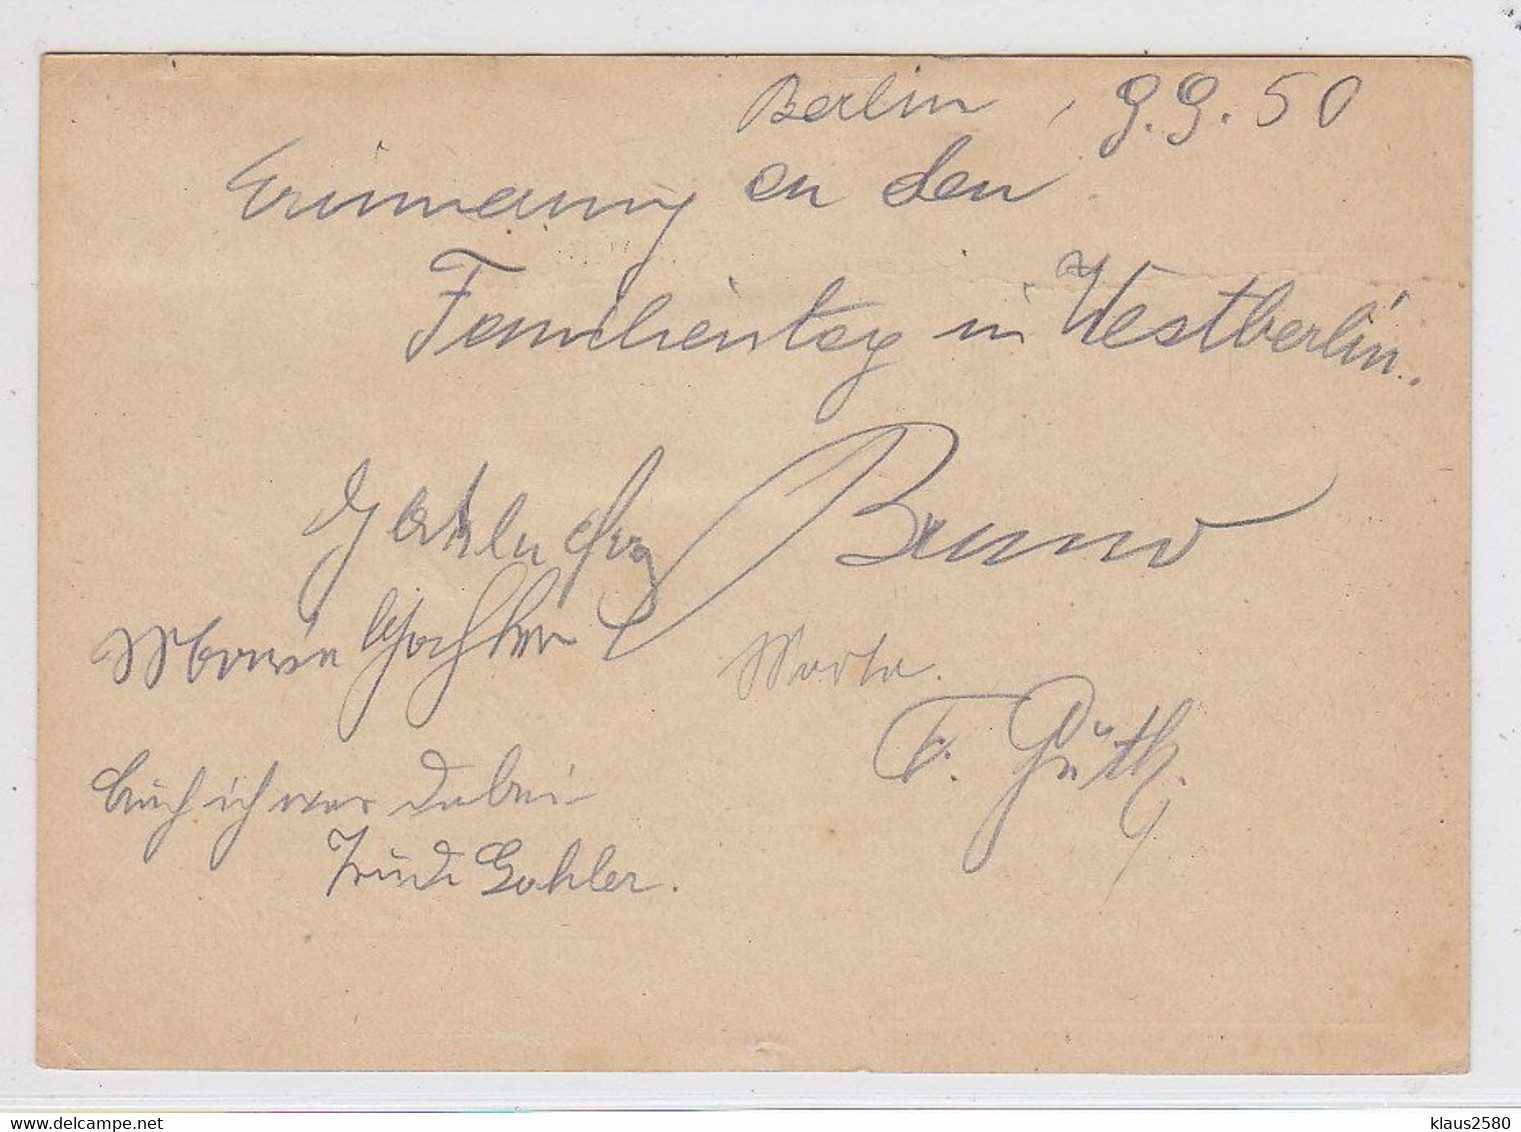 Berlin, 9.9.50
Erinnerung an den
Familientag in Westberlin.
Bruno
Marie
Marta.
F. Güth.
Auch ich war dabei
Trude Gohler.
www.delcampe.net
klaus2580